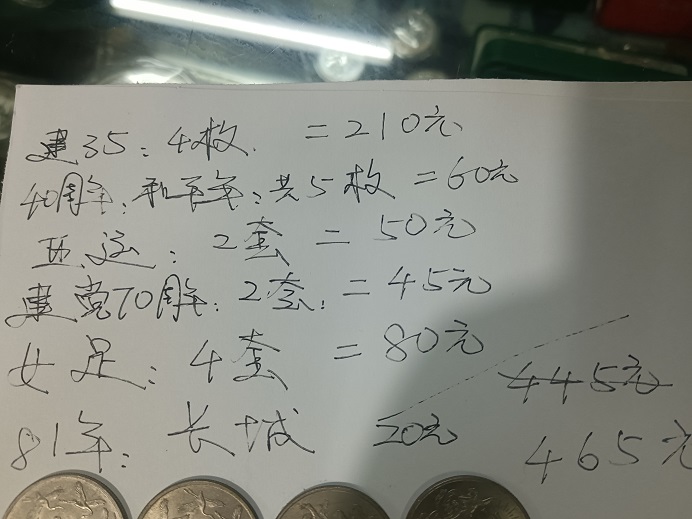 建35：4枚. =210元
40周年：和平年：共5枚 =60元
亚运：2套 = 50元
建党70周年：2套：=45元
女足：4套 =80元
445元
81年：长城 20元
465元